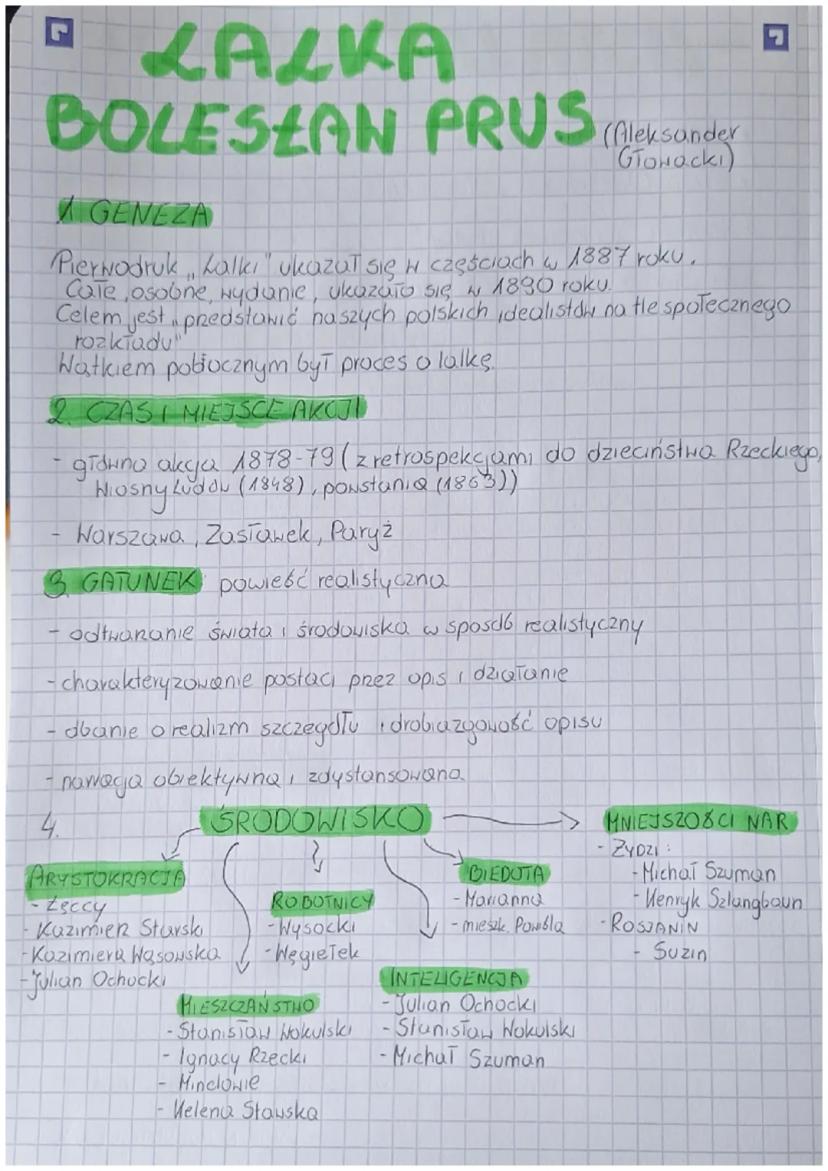 LALKA
BOLESŁAW PRUS (Aleksander
Głowacki)
1 GENEZA
Pierwodruk „Lalki" ukazał się w częściach w 1887 roku.
Całe, osobne, wydanie, ukazało się w 1890 roku.
Celem jest „przedstawić naszych polskich idealistów na tle społecznego
rozkładu"
Wątkiem pobocznym był proces o lalkę.
2. CZAS I MIEJSCE AKCJI
- główna akcja 1878-79 (z retrospekcjami do dzieciństwa Rzeckiego,
Wiosny Ludów (1848), powstania (1863))
- Warszawa, Zasławek, Paryż
3. GATUNEK powieść realistyczna
- odtwarzanie świata i środowiska w sposób realistyczny
- charakteryzowanie postaci przez opis i działanie
- dbanie o realizm szczegółu i drobiazgowość opisu
- narracja obiektywna i zdystansowana
4. ŚRODOWISKO
MNIEJSZOŚCI NAR
- ŻYDZI:
- Michał Szuman
- Henryk Szlangbaum
- ROSJANIN
- Suzin
ARYSTOKRACJA
- Łęccy
- Kazimierz Starski
- Kazimiera Wąsowska
- Julian Ochocki
ROBOTNICY
- Wysocki
- Węgiełek
BIEDOTA
- Marianna
- mieszk. Powiśla
MIESZCZAŃSTWO
- Stanisław Wokulski
- Ignacy Rzecki
- Minclowie
- Helena Stawska
INTELIGENCJA
- Julian Ochocki
- Stanisław Wokulski
- Michał Szuman